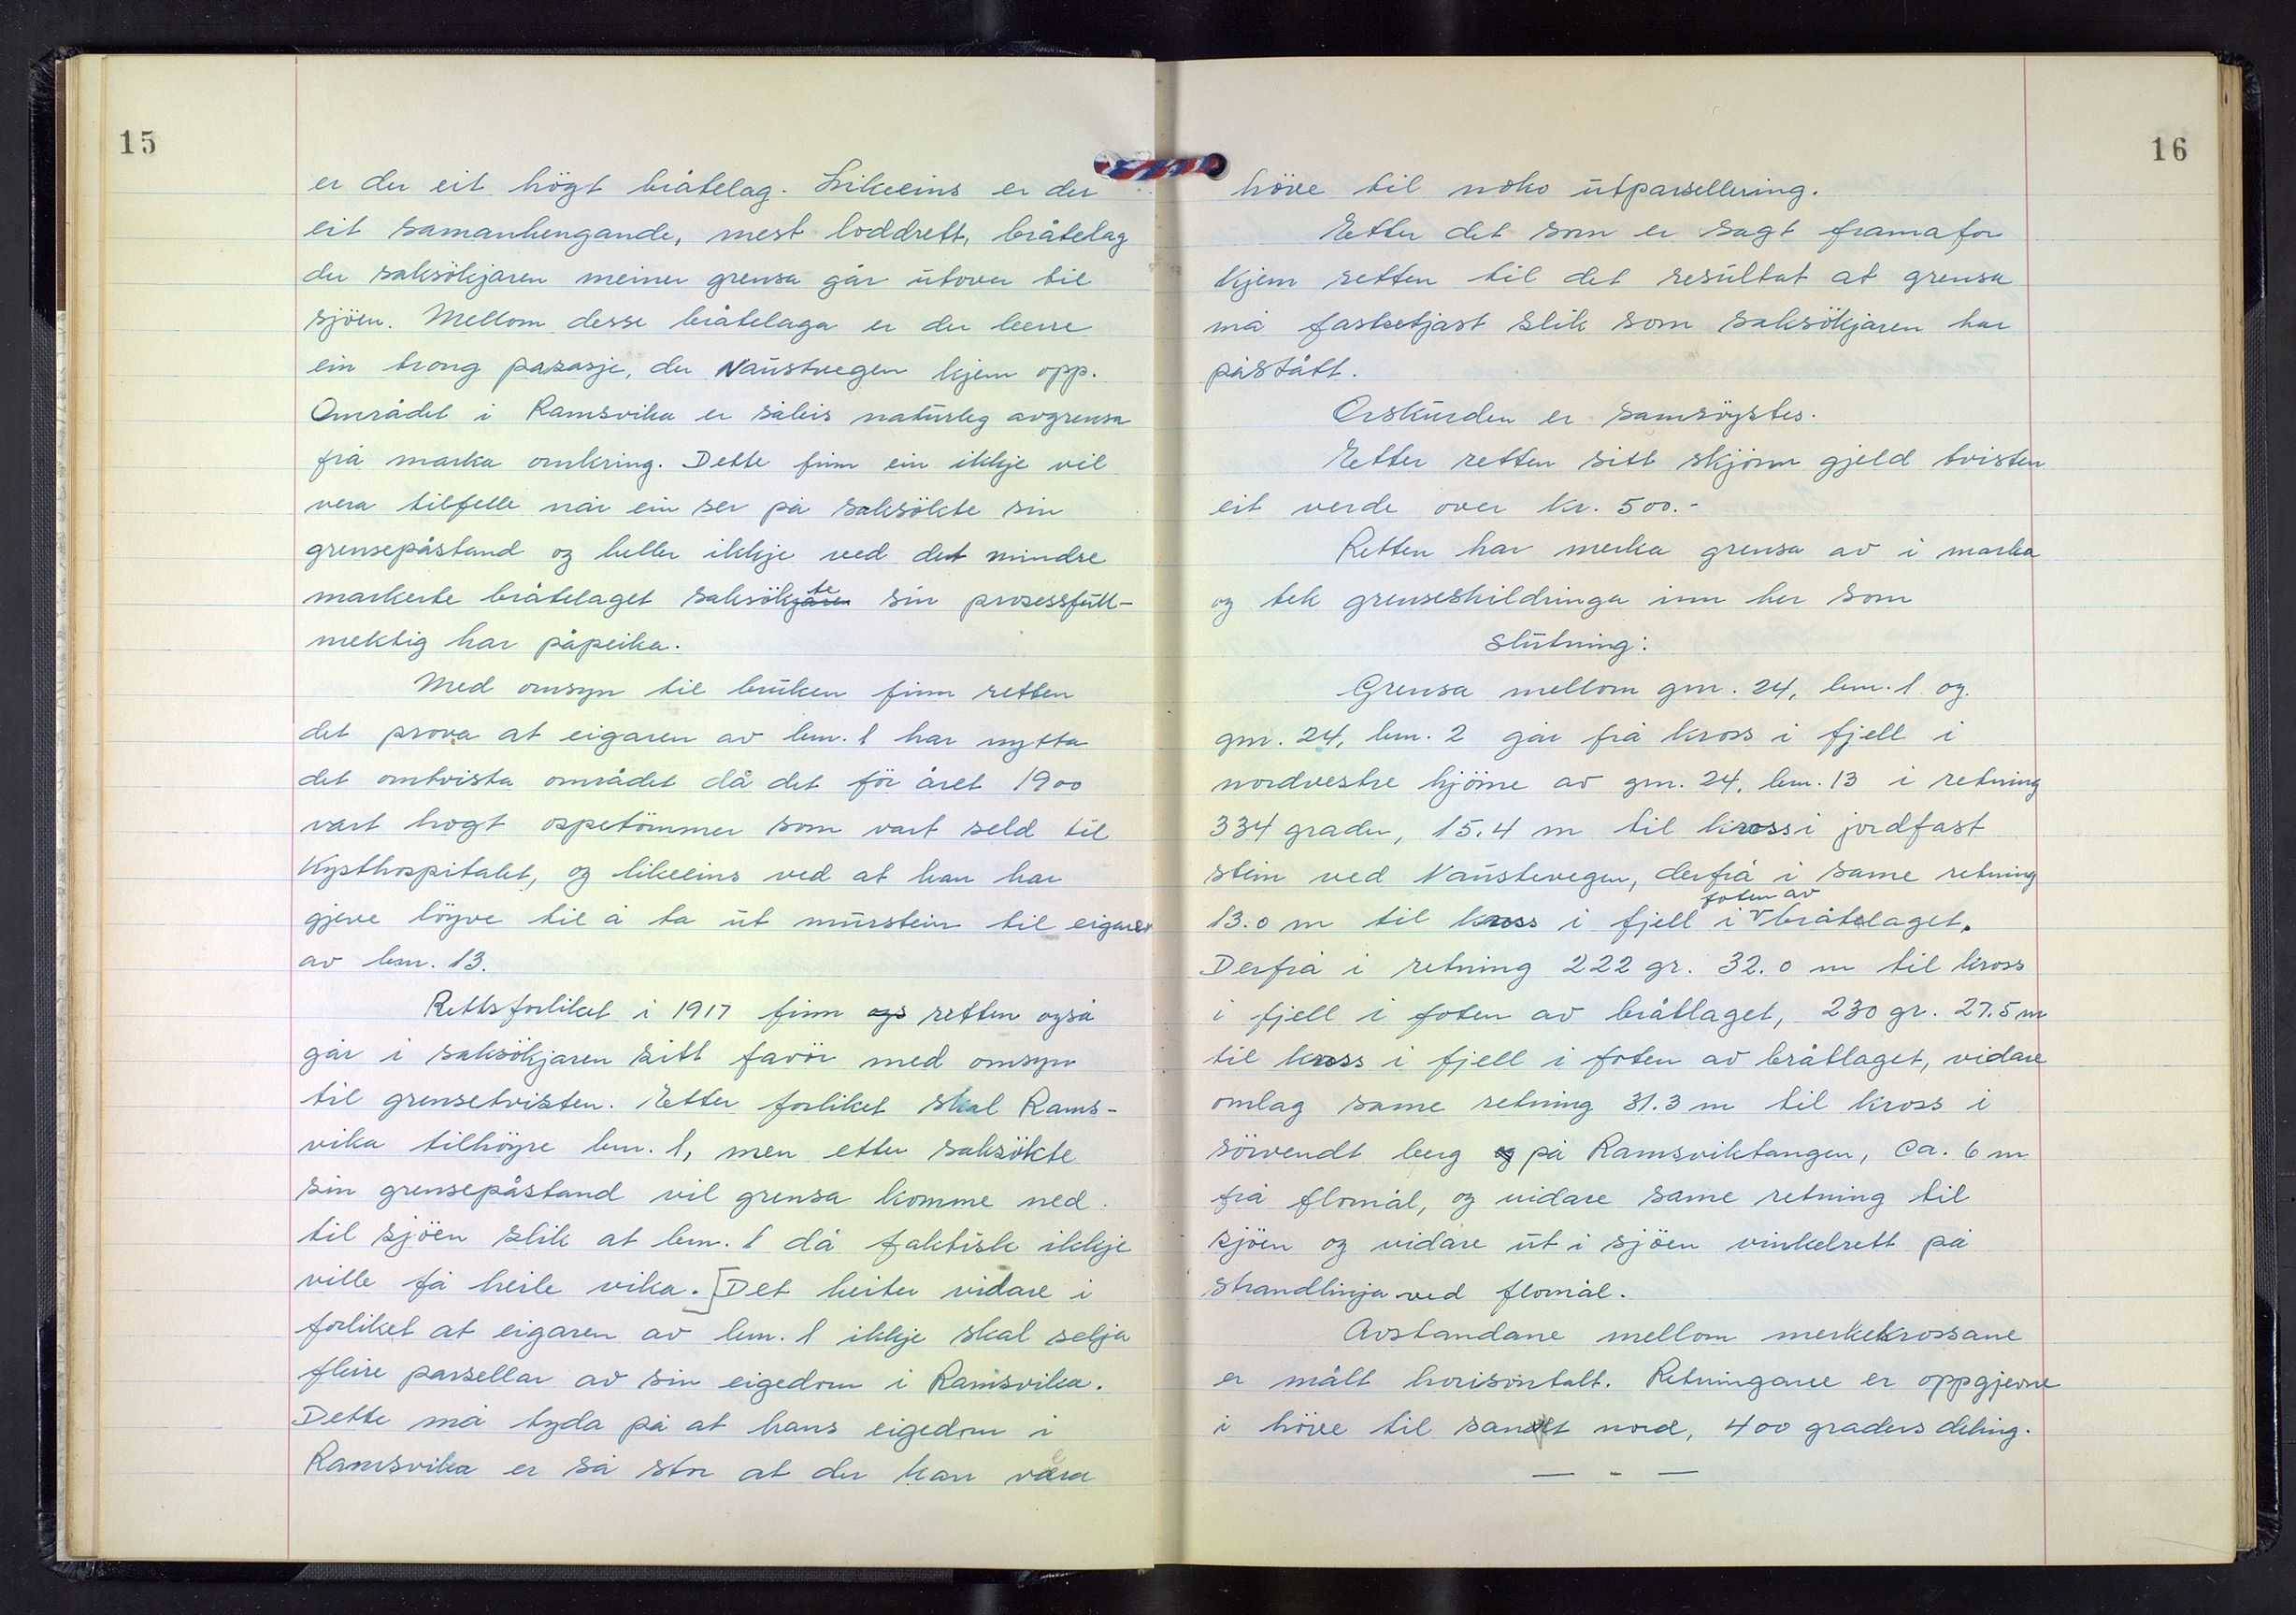 15
er der eit högt bråtelag. Likeeins er der
eit samanhengande, mest loddrett, bråtelag
der saksökjaren meiner grensa går utover til
sjöen. Mellom desse bråtelaga er der berre
ein trong pasasje, der Naustvegen kjem opp.
Området i Ramsvika er såleis naturleg avgrensa
frå marka omkring. Dette finn ein ikkje vil
vera tilfelle når ein ser på saksökte sin
grensepåstand og heller ikkje ved det mindre
markerte bråtelaget saksökjaren te sin prosessfull-
mektig har påpeika.
Med omsyn til bruken finn retten
det prova at eigaren av bnr. 1 har nytta
det omtvista området då det för året 1900
vart hogt ospetömmer som vart seld til
Kysthospitalet, og likeeins ved at han har
gjeve löyve til å ta ut murstein til eigaren
av bnr. 13.
Rettsforliket i 1917 finn ogs retten også
går i saksökjaren sitt favör med omsyn
til grensetvisten. Etter forliket skal Rams-
vika tilhöyre bnr. 1, men etter saksökte
sin grensepåstand vil grensa komme ned
til sjöen slik at bnr. 1 då faktisk ikkje
ville få heile vika. [Det heiter vidare i
forliket at eigaren av bnr. 1 ikkje skal selja
fleire parsellar av sin eigedom i Ramsvika.
Dette må tyda på at hans eigedom i
Ramsvika er så stor at der kan vera
16
höve til noko utparsellering.
Etter det som er sagt framafor
kjem retten til det resultat at grensa
må fastsetjast slik som saksökjaren har
påstått.
Orskurden er samröystes.
Etter retten sitt skjönn gjeld tvisten
eit verde over kr. 500.-
Retten har merka grensa av i marka
og tek grenseskildringa inn her som
slutning:
Grensa mellom gnr. 24, bnr. 1 og
gnr. 24, bnr. 2 går frå kross i fjell i
nordvestre hjörne av gnr. 24, bnr. 13 i retning
334 grader, 15.4 m til kross i jordfast
stein ved Naustevegen, derfrå i same retning
foten av
13.0 m til kross i fjell i v bråtelaget.
Derfrå i retning 222 gr. 32.0 m til kross
i fjell i foten av bråtlaget, 230 gr. 27.5 m
til kross i fjell i foten av bråtlaget, vidare
omlag same retning 31.3 m til kross i
sörvendt berg og på Ramsviktangen, ca. 6 m
frå flomål, og vidare same retning til
sjöen og vidare ut i sjöen vinkelrett på
strandlinja ved flomål.
Avstandane mellom merkekrossane
er målt horisontalt. Retningane er oppgjevne
i höve til sandt nord, 400 graders deling.
— - —